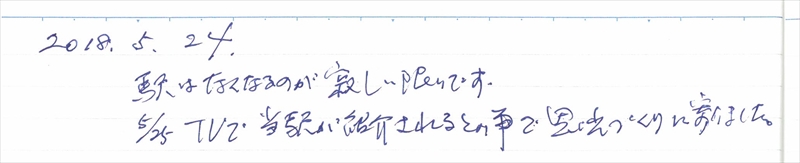 2018.5.24.
駅はなくなるのが寂しい限りです。
5/25 TVで当駅が紹介されるとの事で思い出づくりに寄りました。